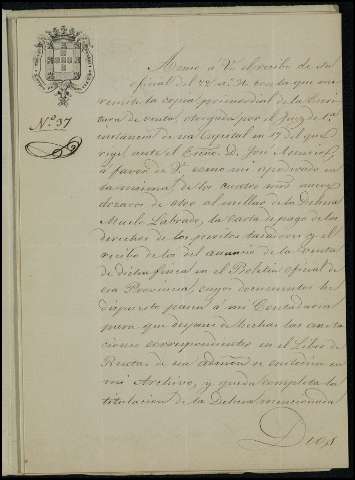 Nº. 37
Acuso a V. el recibo de su
oficial del 22 con la que me
remite la copia primordial de la Escri-
tura de venta, otorgada por el Juez de 1ª
instancia de esa Capital en 17 del que
rige ante el Esnº. D. José
á favor de V. como mi apoderado en
la misma de los cuatro mil nueve
de otro al millar de la Dehesa
Labrado, la carta de pago de los
derechos de los peritos tasadores y el
recibo de los del anuncio de la venta
de dicha finca en el Boletin oficial de
esa Provincia, cuyos documentos he
dispuesto pasen á mi Contaduria
para que despues de hechas las anota-
ciones correspondientes en el Libro de
Rentas de esa admon. se custodien en
mi Archivo, y quede completa la
titulacion de la Dehesa mencionada
Dios